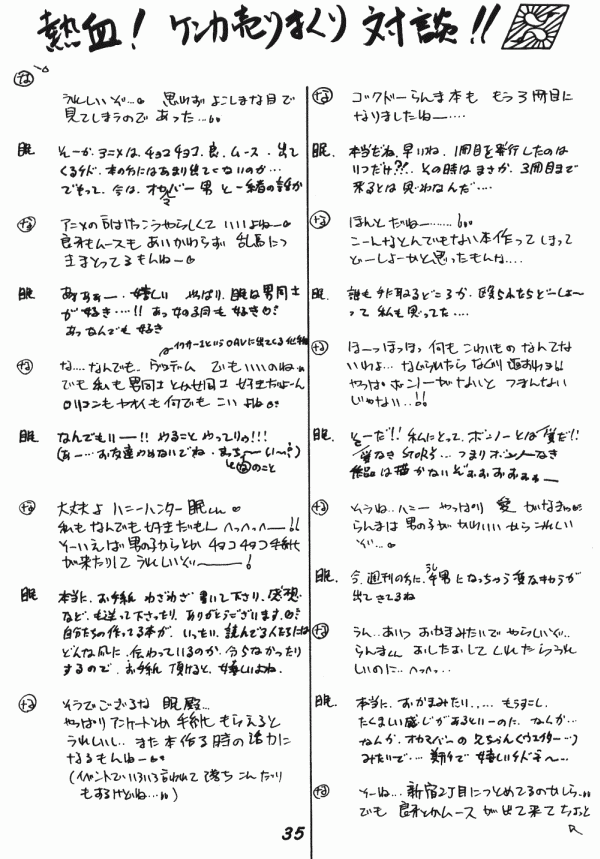 熱血！ ケンカ売りまくり 対談!!
な うれしいぞ…。 思わず よこしまな目で
見てしまうので あった…。
眠 そーか、アニメは、チョコチョコ、良、ムース、出て
くるケド、本の方にはあまり出てこないのが…
でもって、今は、オカマバー 男と一緒の話か
な アニメの 声はけっこうやらしくて いいよねー。
良牙もムースも あいかわらず 乱馬につ
きまとってるもんねー。
眠 あぁぁー、嬉しい やっぱり、眠は男同士
が好き…!! あっ女の子同も好き
あっなんでも好き
な な…なんでも、 でもいいのねぇ
でも私も 男同士 とか女同士 好きだよーん
ロリコンもヤオイも何でも こいよね
眠 なんでもいー!! やることやってりゃ!!!
(あー… お友達やめないでね
のこと
な 大丈夫よ ハニーハンター 眠くん
私もなんでも好きだもん へっへっへー!!
そーいえば 男の子からとか チョコチョコ手紙
が来たりして うれしいぞー!
眠 本当に、お手紙 わざわざ 書いて下さり、感想
なども送って下さったり、ありがとうございます。
自分たちの作ってる本が、いったい、読んでる人たちには
どんな風に、伝わっているのか、分らなかったり
するので、お手紙 頂けると、嬉しいよね。
な そうでござるな 眠殿…
やっぱりアンケートとか 手紙とかもらえると
うれしいし、また 本作る時の活力に
なるもんねー
(イベントでいろいろ言われて 落ちこんだり
もするけどね…。)
な ゴクドーらんま本も もう3冊目に
なりましたねー….
眠. 本当だね、早いね、1冊目を発行したのは
いつだけ?!. その時は まさか、3冊目まで
来るとは思わなんだ….
な ほんとだねー……。
こーんなとんでもない本作って しまって
どーしよーかと思ったもんな….
眠. 誰も手取るどころか、殴られたらどーしよ〜
って 私も思ってた….
な ほーっほっほっ 何も こわいもの なんてない
いわよ… なぐられたら なぐり返すわよ!!
やっぱ ボンノーがないと つまんない
じゃない..!!
眠. そーだ!! 私にとって、ボンノーとは愛だ!!
愛なき STORY… つまりボンノーなき
作品は描かないぞぉぉぉぉぉー
な そうね… ハニー やっぱり 愛 がなきゃ
らんまは 男の子が かわいいから うれしい
ぞ…。
眠. 今、週刊の方に、牛男になっちゃう 変なキャラが
出てきてるね
な うん… あいつ おかまみたいで やらしいぞ…
らんまくん おしたおして くれたらうれし
いのに… へっへっ…
眠. 本当に、おかまみたい…… もう少し、
たくましい感じがあるといーのに、なんか…
なんか、オカマバーの 兄ちゃん(ウエイター…)
みたいで… 期待で 嬉しいケドネ〜…
な そーね… 新宿2丁目につとめてるのかしら…
でも 良牙とかムースが出て来て ちょっと
35